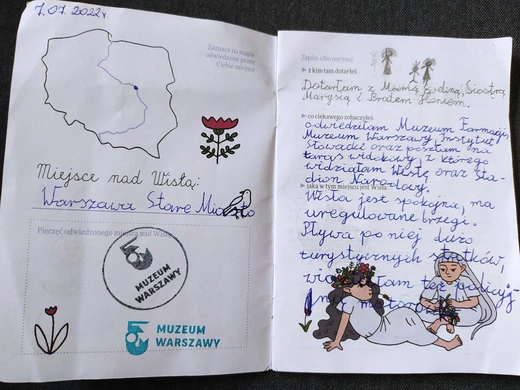 7.07.2022r
Zaznacz na mapie
odwiedzone przez
Ciebie miejsce
Miejsce nad Wisłą:
Warszawa Stare Miasto
Pieczęć odwiedzonego miejsca nad Wisłą
MUZEUM
WARSZAWY
MUZEUM
WARSZAWY
Zapisz albo narysuj
z kim tam dotarłeś
Dotarłam z Mamą Siostrą
Marysią i Bratem
co ciekawego zobaczyłeś
odwiedziłam Muzeum Farmacji,
Muzeum Warszawy Instytut
Słowacki oraz poszłam na
taras widokowy, z którego
widziałam Wisłę oraz Sta-
dion Narodowy.
jaka w tym miejscu jest Wisła
Wisła jest spokojna, ma
uregulowane brzegi.
Pływa po niej dużo
turystycznych statków,
tam też policyj-